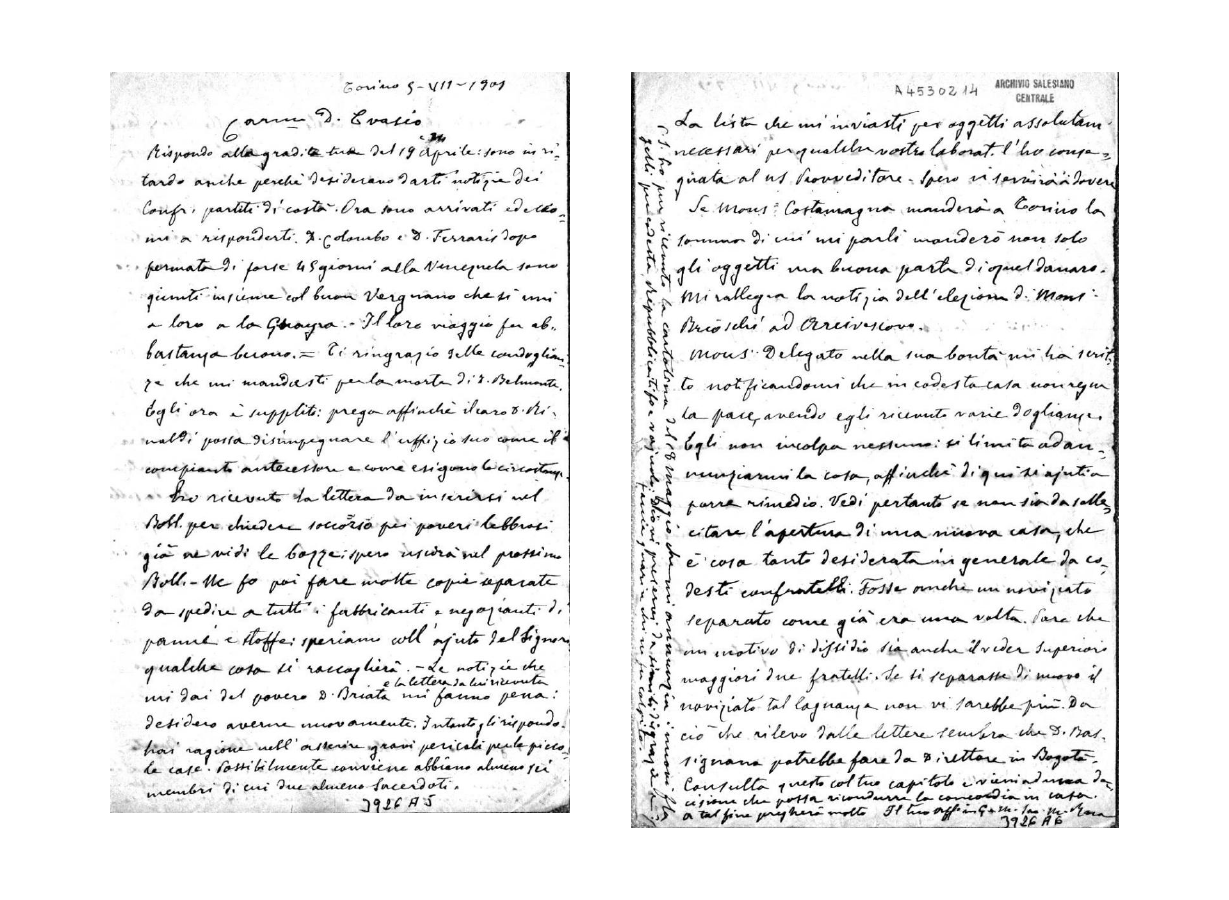 Torino 5-VII-1901
Carmo D. Evasio
Rispondo alla gradita tua del 19 Aprile: sono in ri-
tardo anche perchè desideravo darti notizie dei
Confr. partiti di costà. Ora sono arrivati ed ecco-
mi a risponderti. D. Colombo e D. Ferraris dopo
fermata di forse 45 giorni alla Venezuela sono
giunti insieme col buon Vergnano che si unì
a loro a la Guayra. - Il loro viaggio fu ab-
bastanza buono. = Ti ringrazio delle condoglian-
ze che mi mandasti per la morte di D. Belmonte.
Egli ora è supplito: prega affinchè il caro D. Ri-
naldi possa disimpegnare l'uffizio suo come il
compianto antecessore e come esigono le circostanze.
Ho ricevuto la lettera da inserirsi nel
Boll. per chiedere soccorso pei poveri lebbrosi
già ne vidi le bozze: spero uscirà nel prossimo
Boll. - Ne fo poi fare molte copie separate
da spedire a tutti i fabbricanti e negozianti di
panni e stoffe: speriamo coll'ajuto del Signore
qualche cosa si raccoglierà. - Le notizie che
e la lettera da lui ricevuta
mi dai del povero D. Briata mi fanno pena:
desidero averne nuovamente. Intanto gli rispondo.
hai ragione nell'asserire gravi pericoli per le picco-
le case. Possibilmente conviene abbiano almeno sei
membri di cui due almeno Sacerdoti.
3926 A5
A4530214
ARCHIVIO SALESIANO
CENTRALE
La lista che mi inviasti per oggetti assolutam.
necessari per qualche vostro laborat. l'ho conse-
gnata al ns Provveditore - Spero vi servirà a dovere
Se Mons. Costamagna manderà a Torino la
somma di cui mi parli manderò non solo
gli oggetti ma buona parta di quel danaro.
Mi rallegra la notizia dell'elezione di Mons.
Brioschi ad Arcivescovo.
Mons. Delegato nella sua bontà mi ha scrit-
to notificandomi che in codesta casa non regna
la pace, avendo egli ricevuto varie doglianze.
Egli non incolpa nessuno: si limita ad an-
nunziarmi la cosa, affinchè di qui si ajuti a
porre rimedio. Vedi pertanto se non sia da solle-
citare l'apertura di una nuova casa, che
è cosa tanto desiderata in generale da co-
desti confratelli. Fosse anche un noviziato
separato come già era una volta. Pare che
un motivo di dissidio sia anche il veder Superiori
maggiori due fratelli. Se si separasse di nuovo il
noviziato tal lagnanza non vi sarebbe più. Da
ciò che rilevo dalle lettere sembra che D. Bas-
signana potrebbe fare da Direttore in Bogotà.
Consulta questo col tuo capitolo e vieni ad una de-
cisione che possa ricondurre la concordia in casa.
a tal fine pregherò molto Il tuo aff. in G. e M. Sac. M. Rua
3926 A6
P.S. ho pur ricevuto la cartolina del 18 Maggio che mi annunzia i nuovi
gelli per codesta repubblica: tifo e vajuolo. Dio vi preservi da simili disgrazie